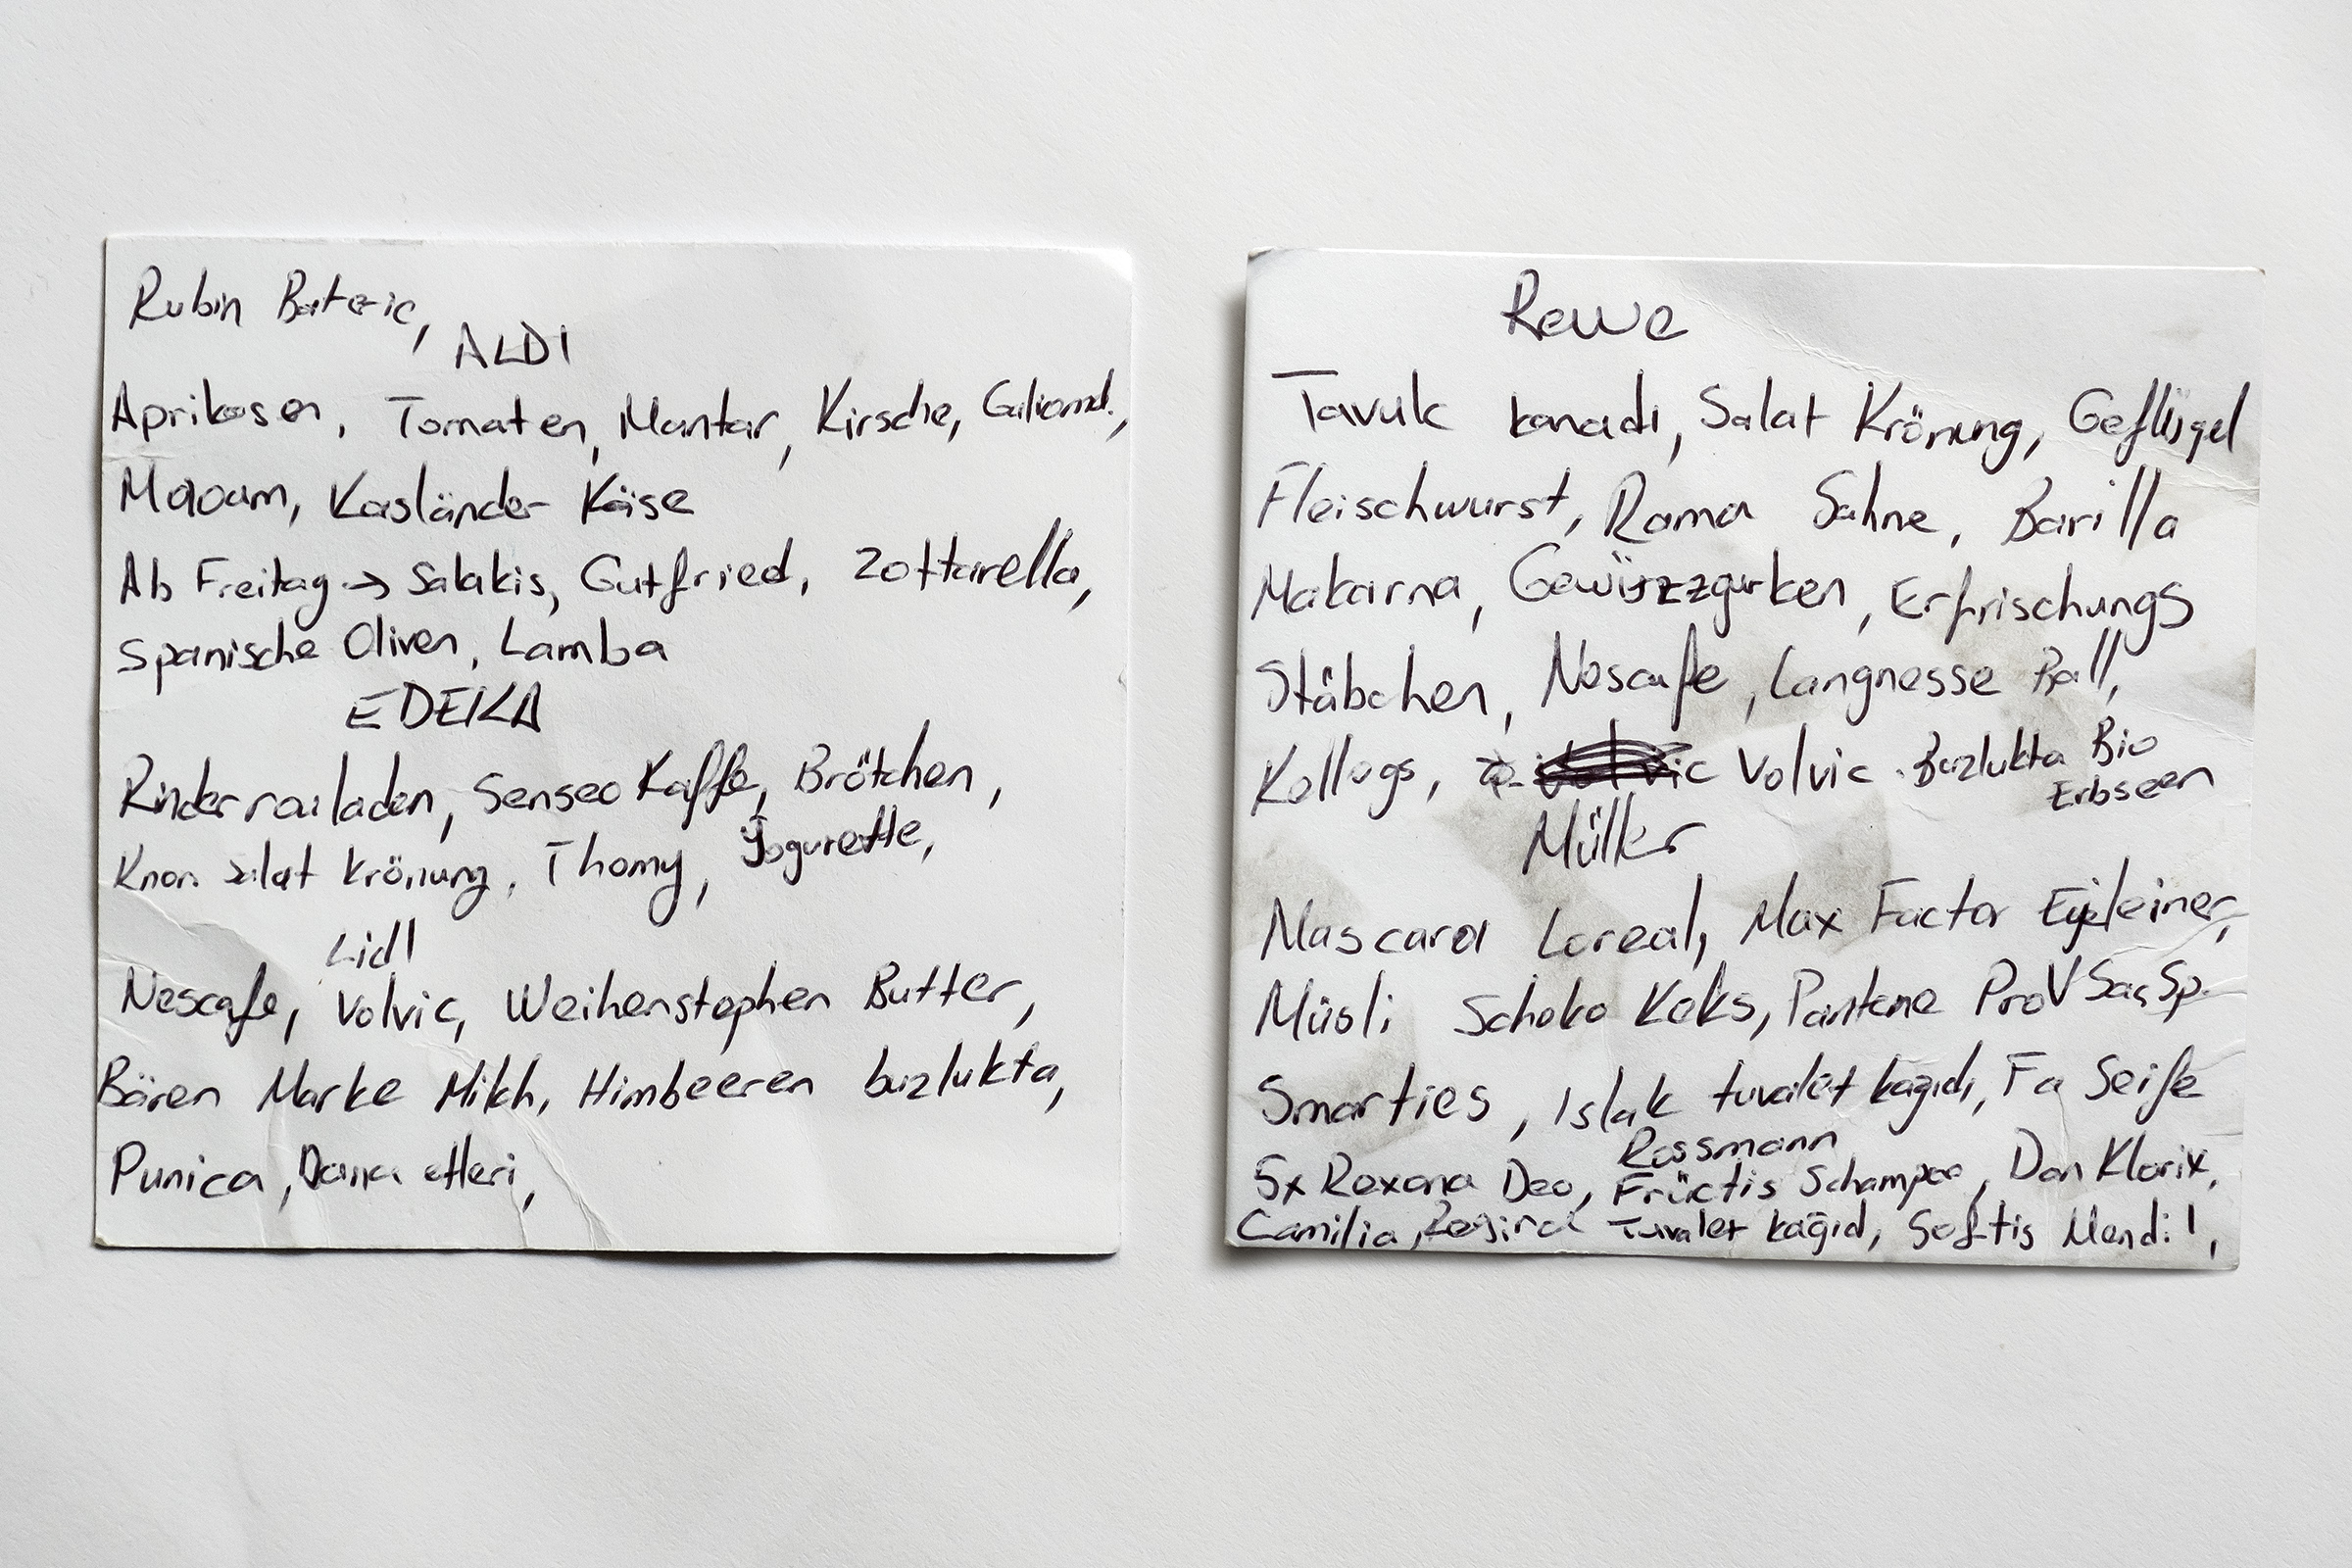 Rubin Baterie,
ALDI
Aprikosen, Tomaten, Mantar, Kirsche,
Maoam, Kasländer Käse
Ab Freitag → Salakis, Gutfried, Zottarella,
Spanische Oliven, Lamba
EDEKA
Rinderrouladen, Senseo Kaffe, Brötchen,
Knorr Salat Krönung, Thomy, Yogurette,
Lidl
Nescafe, Volvic, Weihenstephen Butter,
Bären Marke Milch, Himbeeren buzlukta,
Punica, Dana etleri,
Rewe
Tavuk kanadı, Salat Krönung, Geflügel
Fleischwurst, Rama Sahne, Barilla
Makarna, Gewürzzgurken, Erfrischungs
Stäbchen, Nescafe, Langnesse Ball,
Kellogs, Volvic Buzlukta Bio
Erbseen
Müller
Mascara Loreal, Max Factor Eyeleiner,
Müsli Schoko Keks, Pantene ProV Saç Sp.
Smarties, Islak tuvalet kağıdı, Fa Seife
Rossmann
5x Rexona Deo, Früctis Schampoo, Dan Klorix,
Camilia, Regina Tuvalet kağıd, Softis Mendil,